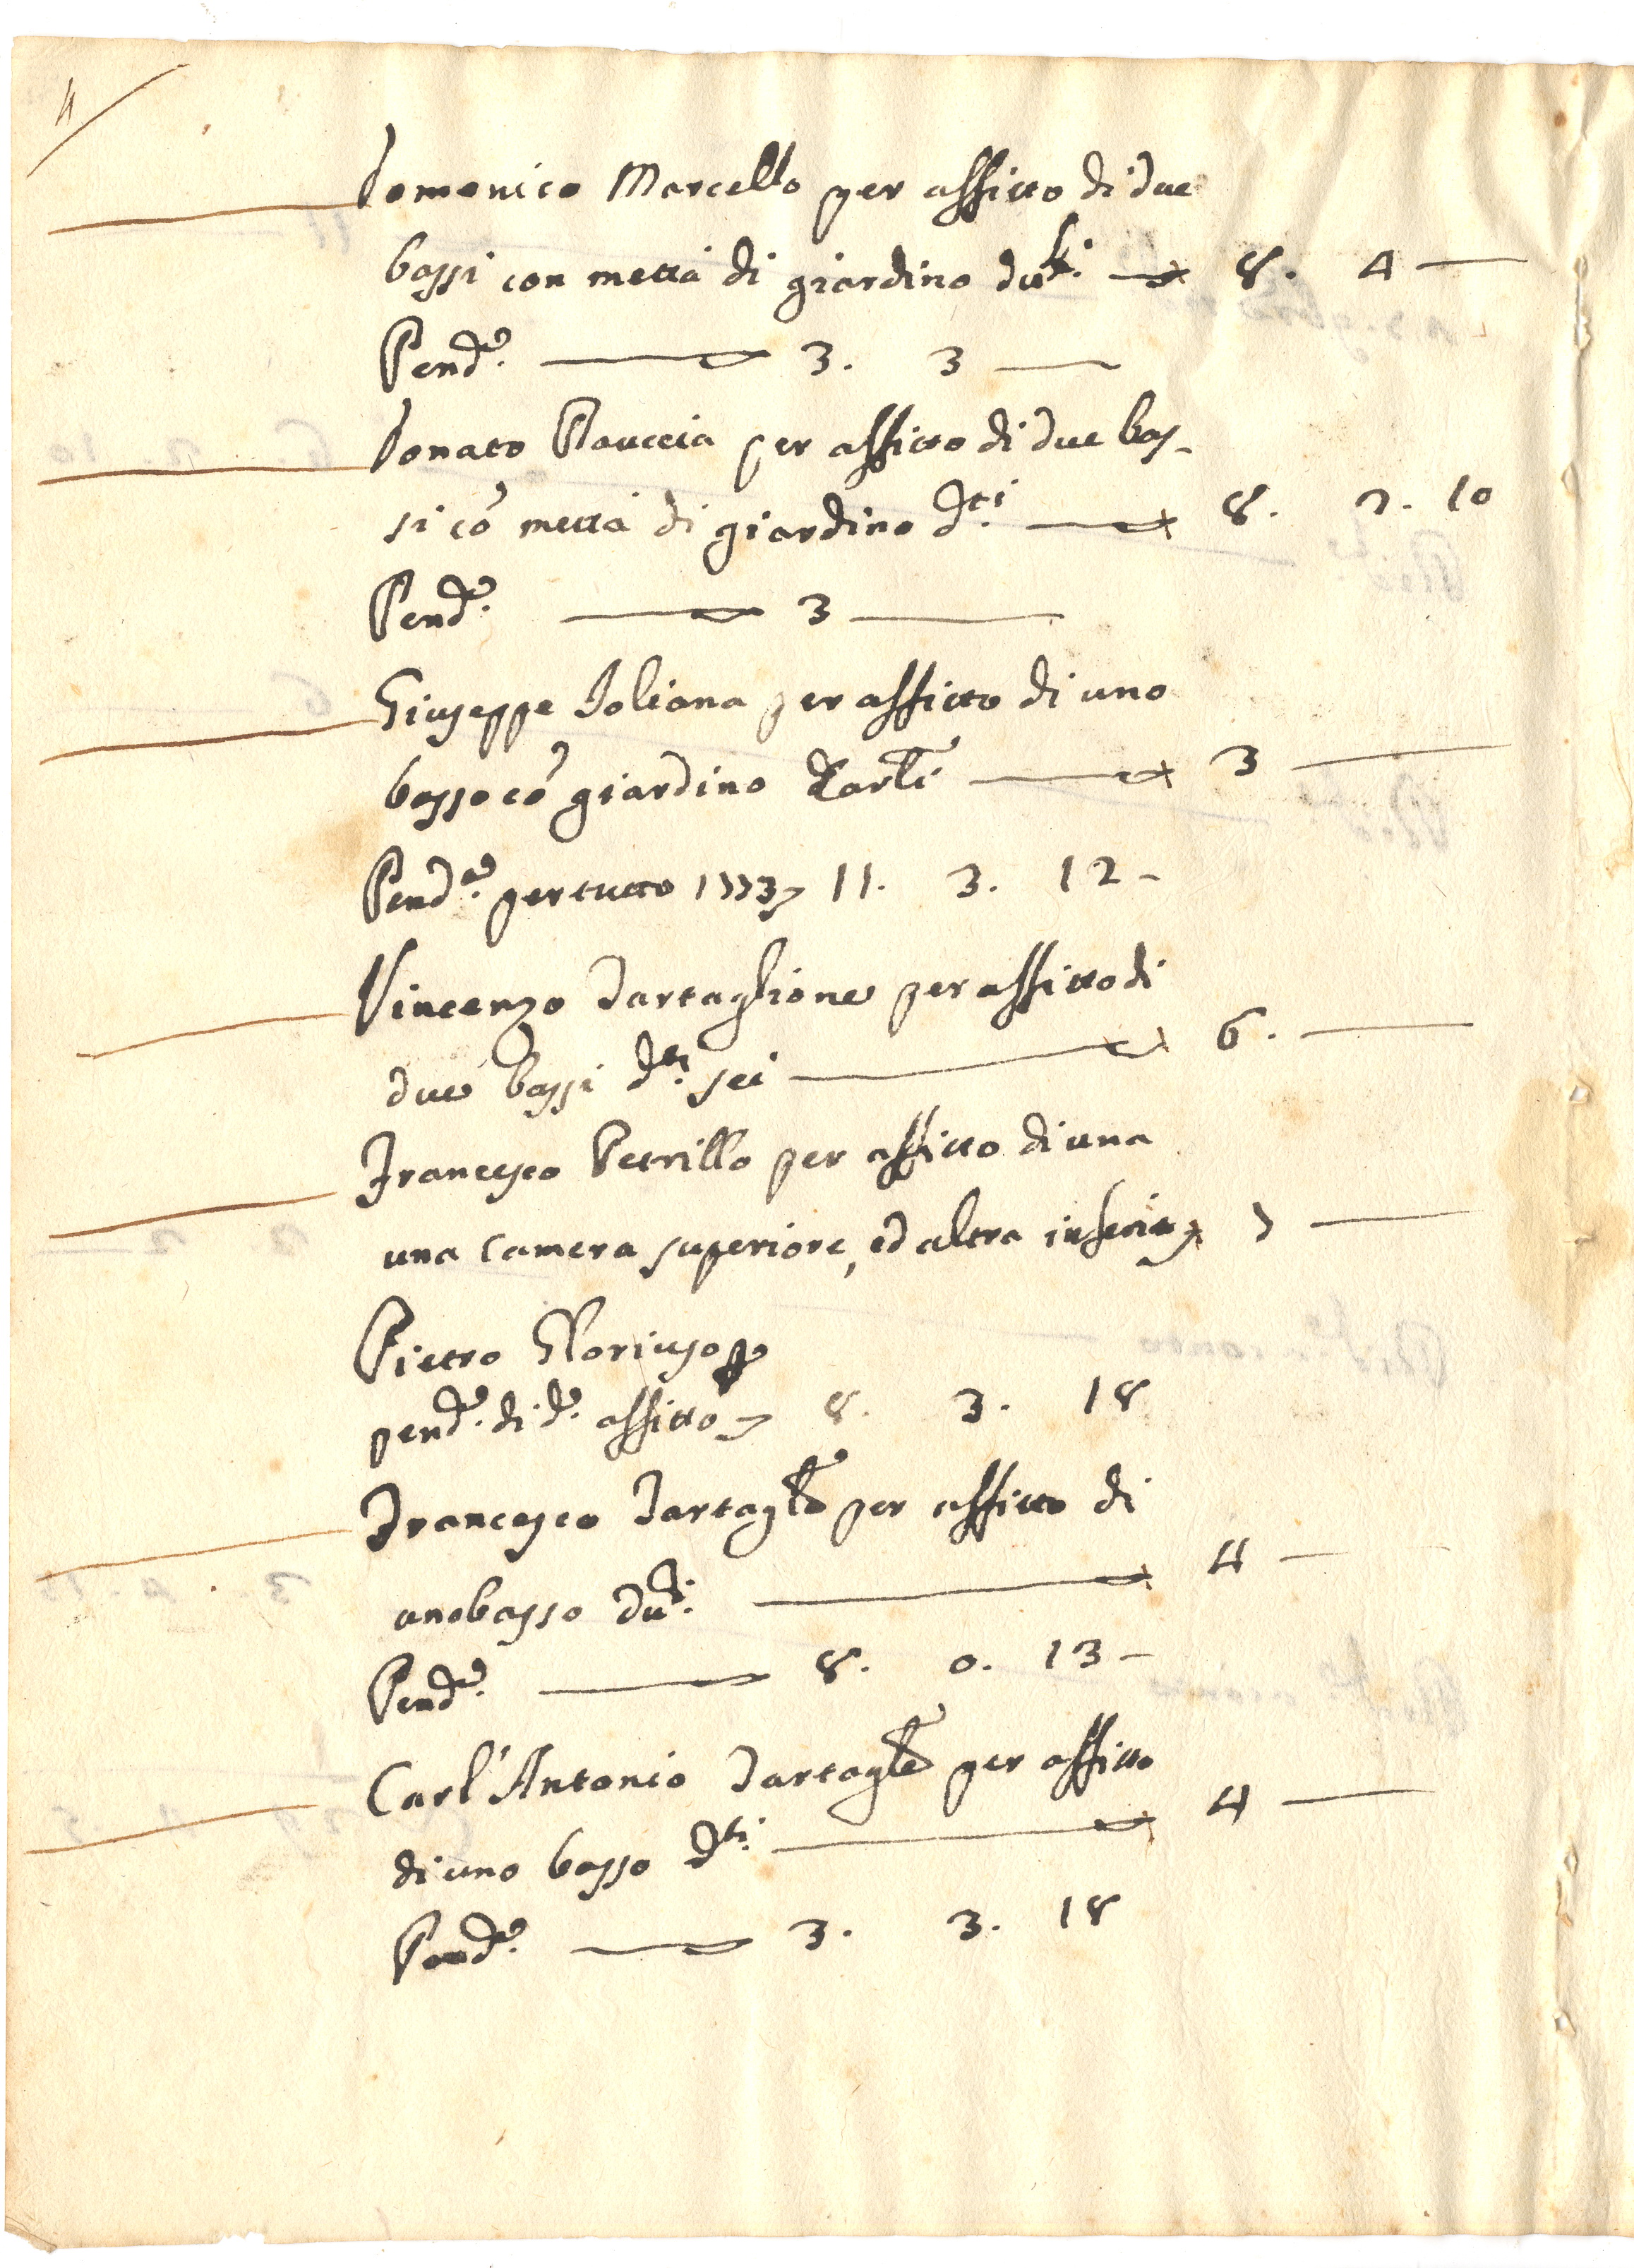 4
Domenico Marcello per affitto di due
bassi con mettà di giardino du.ti 8. 4
Pend.e 3. 3
Donato Rauccia per affitto di due bas-
si cõ mettà di giardino d.ti 8. 2. 10
Pend.e 3
Giuseppe Joliana per affitto di uno
basso cõ giardino 3
Pend.e per tutto 1773 11. 3. 12
Vincenzo Tartaglione per affitto di
due bassi d.ti sei 6.
Francesco Petrillo per affitto di una
una camera superiore, ed altra 7
Pietro
pend.e di d.o affitto 8. 3. 18
Francesco Tartagle per affitto di
uno basso du.ti 4
Pend.e 8. 0. 13
Carl'Antonio Tartagle per affitto
di uno basso d.ti 4
Pend.e 3. 3. 18